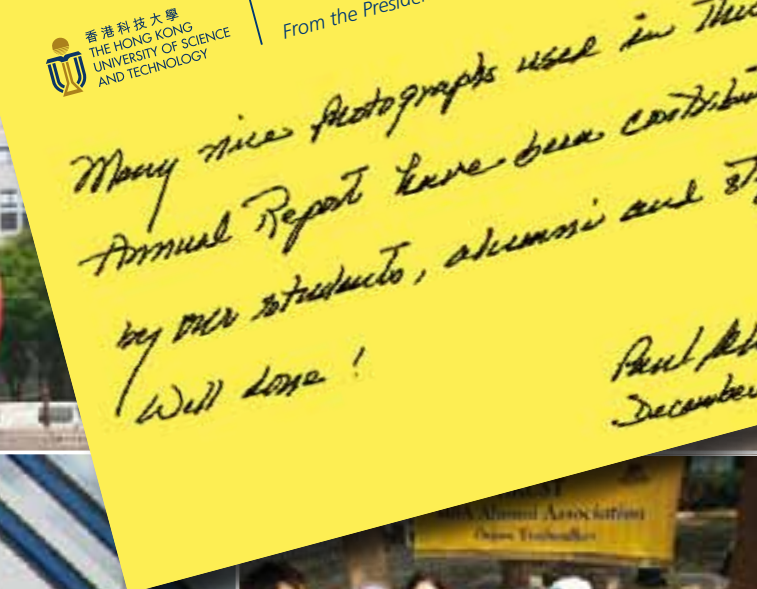 香港科技大學
THE HONG KONG
UNIVERSITY OF SCIENCE
AND TECHNOLOGY
From the Presiden
Many nice photographs used in this
Annual Report have been contribut
by our students, alumni and st
Well done !
Paul
December
Alumni Association